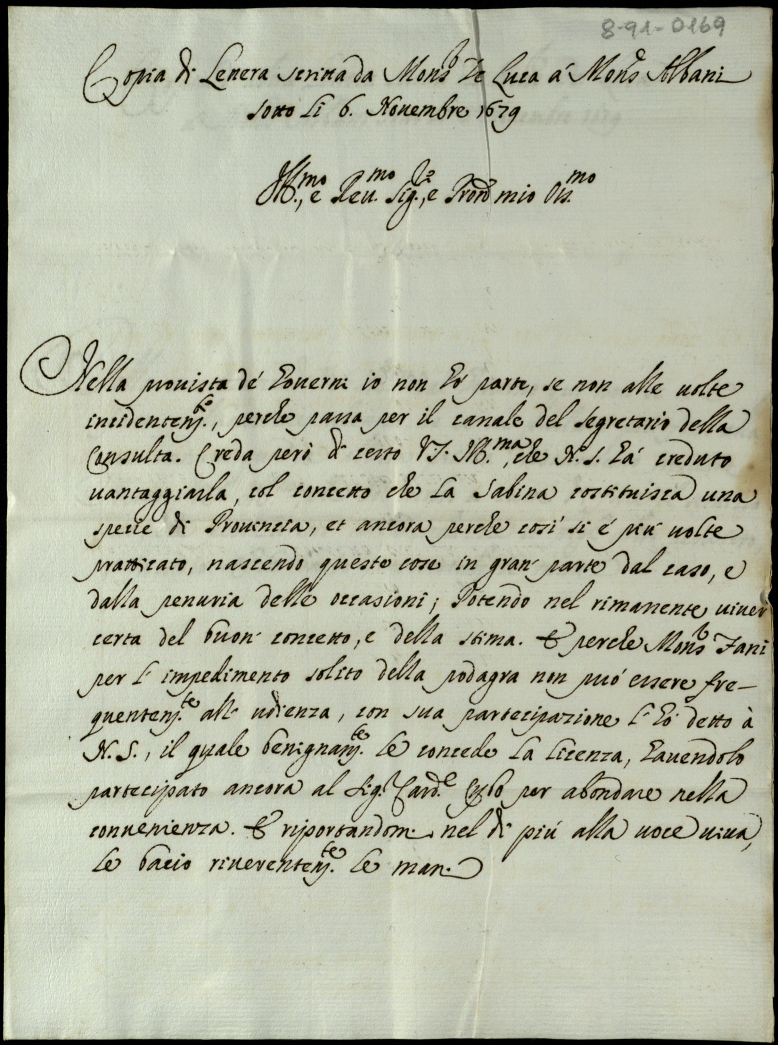 8-91-0169
Copia di Lettera scritta da Mons.r De Luca à Mons.r Albani
sotto li 6. Novembre 1679
Ill.mo, e Rev.mo Sig.re, e Pron mio Oss.mo
Nella provista de' Governi io non hò parte, se non alle volte
incidentem.te, perche passa per il canale del Segretario della
Consulta. Creda però di certo V.S. Ill.ma, che N. S. hà creduto
vantaggiarla, col concetto che la Sabina costituisca una
specie di Provincia, et ancora perche così si è più volte
pratticato, nascendo queste cose in gran' parte dal caso, e
dalla penuria delle occasioni; Potendo nel rimanente viver
certa del buon' concetto, e della stima. E perche Mons.r Fani
per l' impedimento solito della podagra non può essere fre-
quentem.te all' udienza, con sua partecipazione l' hò detto à
N. S., il quale benignam.te le concede la licenza, havendolo
partecipato ancora al Sig.r Card.e Cybo per abondare nella
convenienza. E riportandomi nel di più alla voce viva,
le bacio riverentem.te le mani